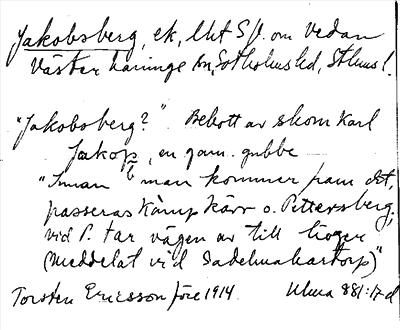 Jakobsberg, ek, lht S/J. om Vedan
Västerhaninge sn, Sotholms hd, Sthms l.
"Jakobsberg?". Bebott av skom Karl
Jakop, en gam. gubbe
"Innan man kommer fram dit,
passeras Kämp kärr o. Pettersberg,
vid P. tar vägen av till höger
(Meddelat vid Sadelmakartorp)"
Torsten Ericsson före 1914. Ulma 881:17 d